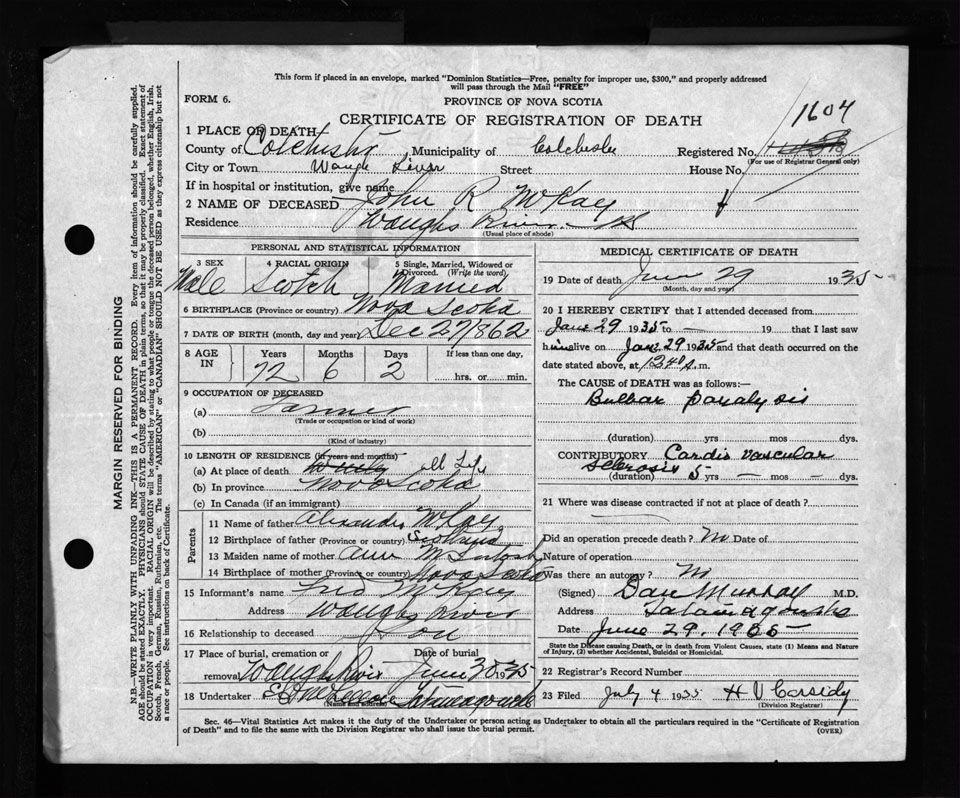 This form if placed in an envelope, marked "Dominion Statistics—Free, penalty for improper use, $300," and properly addressed
will pass through the Mail "FREE"
FORM 6.
PROVINCE OF NOVA SCOTIA
1604
CERTIFICATE OF REGISTRATION OF DEATH
1 PLACE OF DEATH
County of Colchester Municipality of Colchester Registered No.
(For use of Registrar General only)
City or Town Waugh River Street House No.
If in hospital or institution, give name
2 NAME OF DECEASED John R McKay
Residence Waughs River NS
(Usual place of abode)
PERSONAL AND STATISTICAL INFORMATION
3 SEX 4 RACIAL ORIGIN 5 Single, Married, Widowed or Divorced. (Write the word)
Male Scotch Married
6 BIRTHPLACE (Province or country) Nova Scotia
7 DATE OF BIRTH (month, day and year) Dec 27/862
8 AGE IN Years Months Days If less than one day,
72 6 2 hrs. or min.
9 OCCUPATION OF DECEASED
(a) Farmer
(Trade or occupation or kind of work)
(b)
(Kind of industry)
10 LENGTH OF RESIDENCE (in years and months)
(a) At place of death All Life
(b) In province Nova Scotia
(c) In Canada (if an immigrant)
Parents
11 Name of father Alexander McKay
12 Birthplace of father (Province or country) Scotland
13 Maiden name of mother Ann McIntosh
14 Birthplace of mother (Province or country) Nova Scotia
15 Informant's name Fred McKay
Address Waughs River
16 Relationship to deceased Son
17 Place of burial, cremation or removal Date of burial
Waughs River June 30 1935
18 Undertaker Tatamagouche
(Name and address)
MEDICAL CERTIFICATE OF DEATH
19 Date of death June 29 1935
(Month, day and year)
20 I HEREBY CERTIFY that I attended deceased from
June 29 1935 to — 19 that I last saw
him alive on June 29 1935 and that death occurred on the
date stated above, at m.
The CAUSE of DEATH was as follows:—
Bulbar paralysis
(duration) yrs mos dys.
CONTRIBUTORY Cardio vascular
sclerosis
(duration) 5 yrs — mos — dys.
21 Where was disease contracted if not at place of death?
Did an operation precede death? No Date of
Nature of operation
Was there an autopsy? No
(Signed) Dan Murray M.D.
Address Tatamagouche
Date June 29. 1935
State the Disease causing Death, or in death from Violent Causes, state (1) Means and Nature of Injury, (2) whether Accidental, Suicidal or Homicidal.
22 Registrar's Record Number
23 Filed July 4 1935 H V Cassidy
(Division Registrar)
Sec. 46—Vital Statistics Act makes it the duty of the Undertaker or person acting as Undertaker to obtain all the particulars required in the "Certificate of Registration
of Death" and to file the same with the Division Registrar who shall issue the burial permit.
(OVER)
MARGIN RESERVED FOR BINDING
N.B.—WRITE PLAINLY WITH UNFADING INK—THIS IS A PERMANENT RECORD. Every item of information should be carefully supplied.
AGE should be stated EXACTLY. PHYSICIANS should STATE CAUSE OF DEATH in plain terms, so that it may be properly classified. Exact statement of
OCCUPATION is very important. RACIAL ORIGIN will be described by stating to what people or tongue the deceased person belonged, whether English, Irish,
Scotch, French, German, Russian, Ruthenian, etc. The terms "AMERICAN" or "CANADIAN" SHOULD NOT BE USED as they express citizenship but not
a race or people. See instructions on back of Certificate.